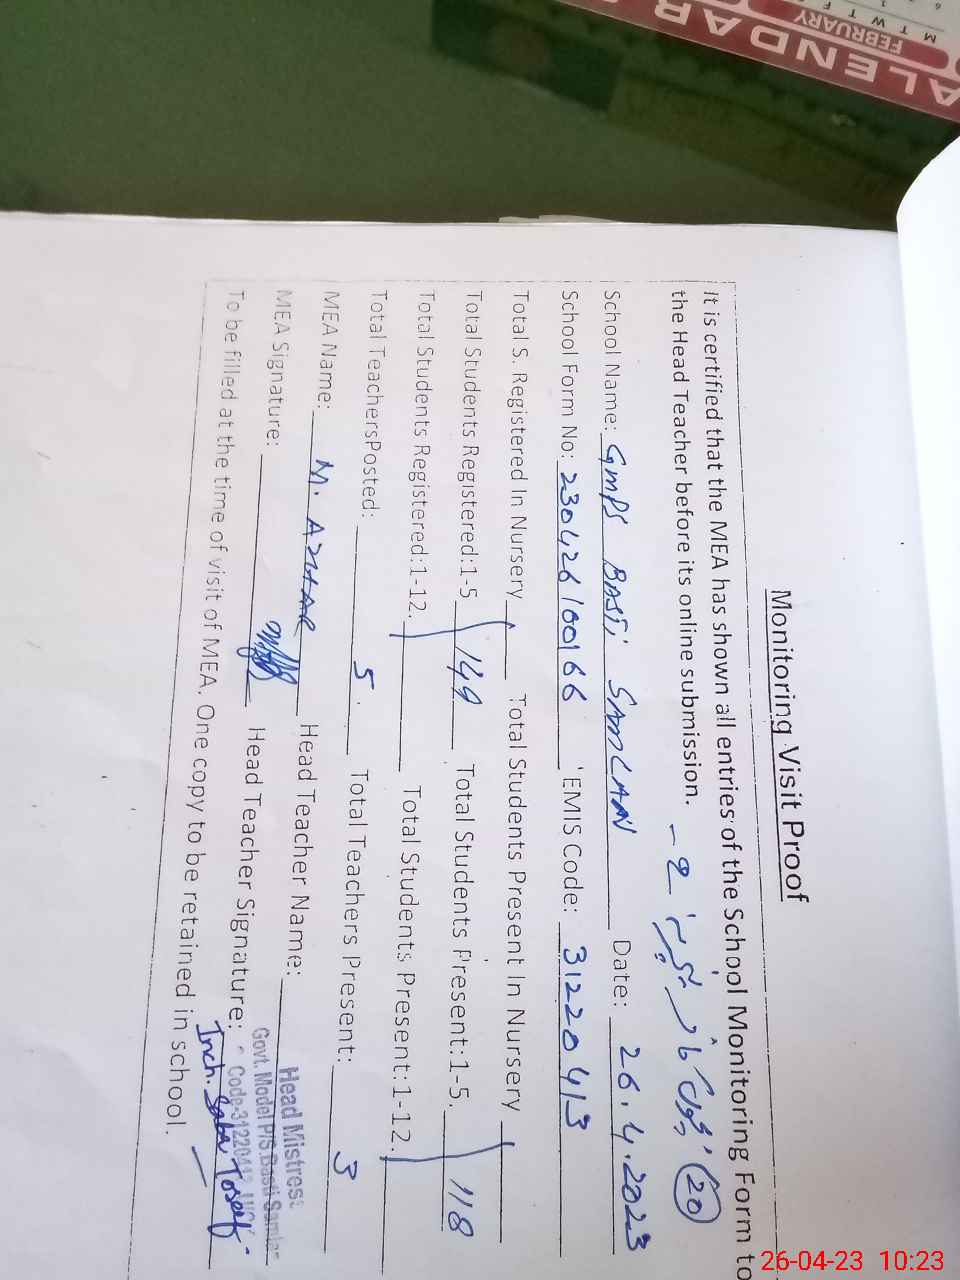 CALENDAR
FEBRUARY
M T W T F
Monitoring Visit Proof
It is certified that the MEA has shown all entries of the School Monitoring Form to
the Head Teacher before its online submission.
20
School Name: GMPS BASTI SAMLAN Date: 26.4.2023
School Form No: 230426100166 EMIS Code: 31220413
Total S. Registered In Nursery Total Students Present In Nursery
Total Students Registered:1-5 149 Total Students Present:1-5. 118
Total Students Registered:1-12. Total Students Present:1-12.
Total TeachersPosted: 5. Total Teachers Present: 3
MEA Name: M. AZHAR Head Teacher Name:
MEA Signature: Head Teacher Signature:
Head Mistres
Govt. Model P/S Basti Samlan
Code-31220413
Inch. Saba
To be filled at the time of visit of MEA. One copy to be retained in school.
26-04-23 10:23